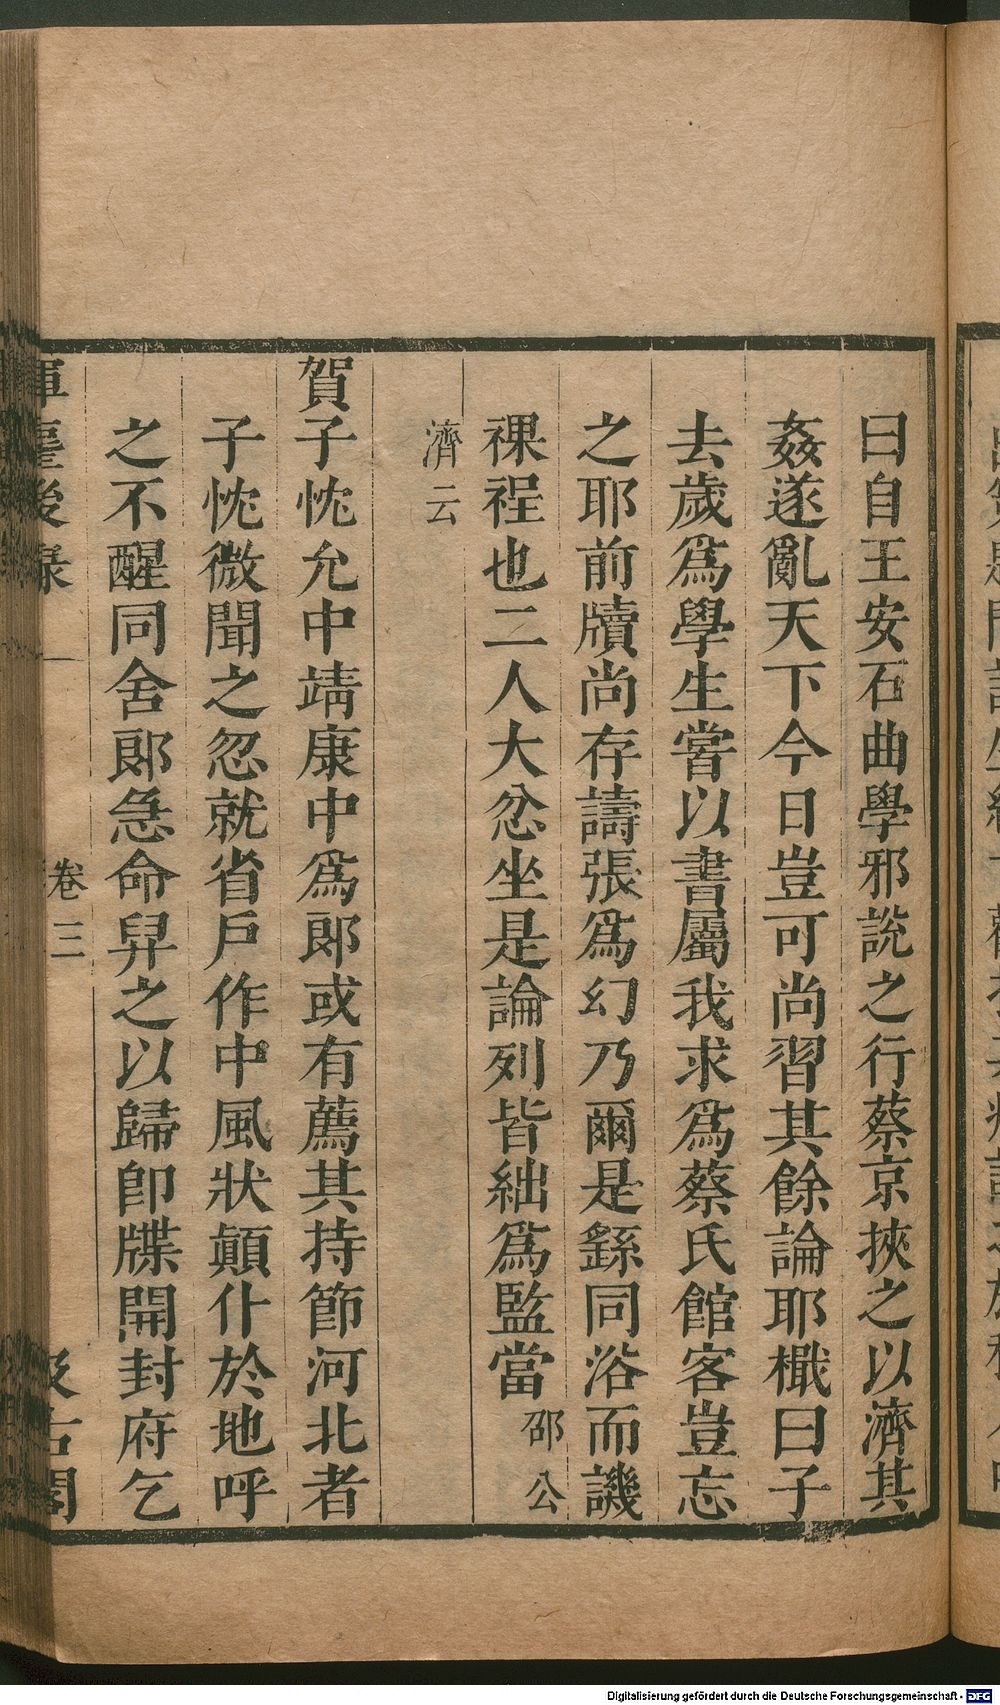 曰自王安石曲學邪說之行蔡京挾之以濟其
姦遂亂天下今日豈可尚習其餘論耶檝曰子
去歲爲學生嘗以書屬我求爲蔡氏館客豈忘
之耶前牘尚存譸張爲幻乃爾是繇同浴而譏
裸裎也二人大忿坐是論列皆絀爲監當邵公
濟云
賀子忱允中靖康中爲郎或有薦其持節河北者
子忱微聞之忽就省戶作中風狀顚仆於地呼
之不醒同舍郎急命舁之以歸卽牒開封府乞
揮麈後錄 卷三 汲古閣
Digitalisierung gefördert durch die Deutsche Forschungsgemeinschaft - DFG